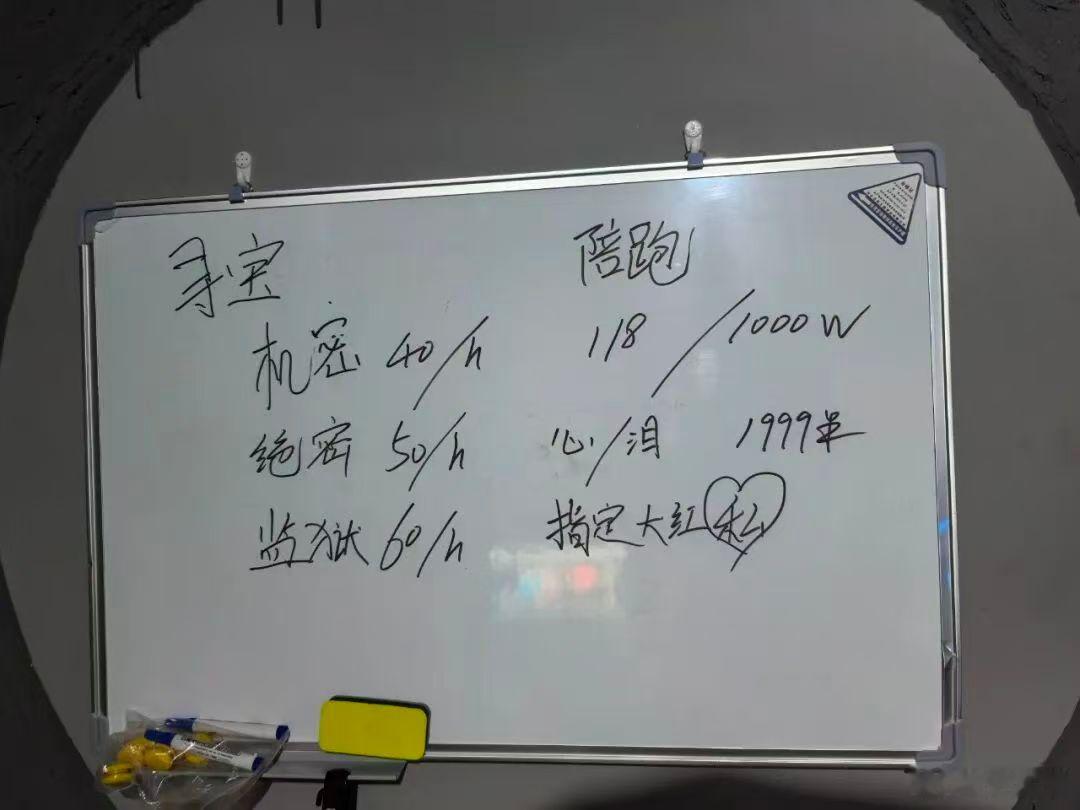 寻宝
机密 40/h
绝密 50/h
监狱 60/h
陪跑
118 / 1000W
心/泪 1999半
指定大红 私